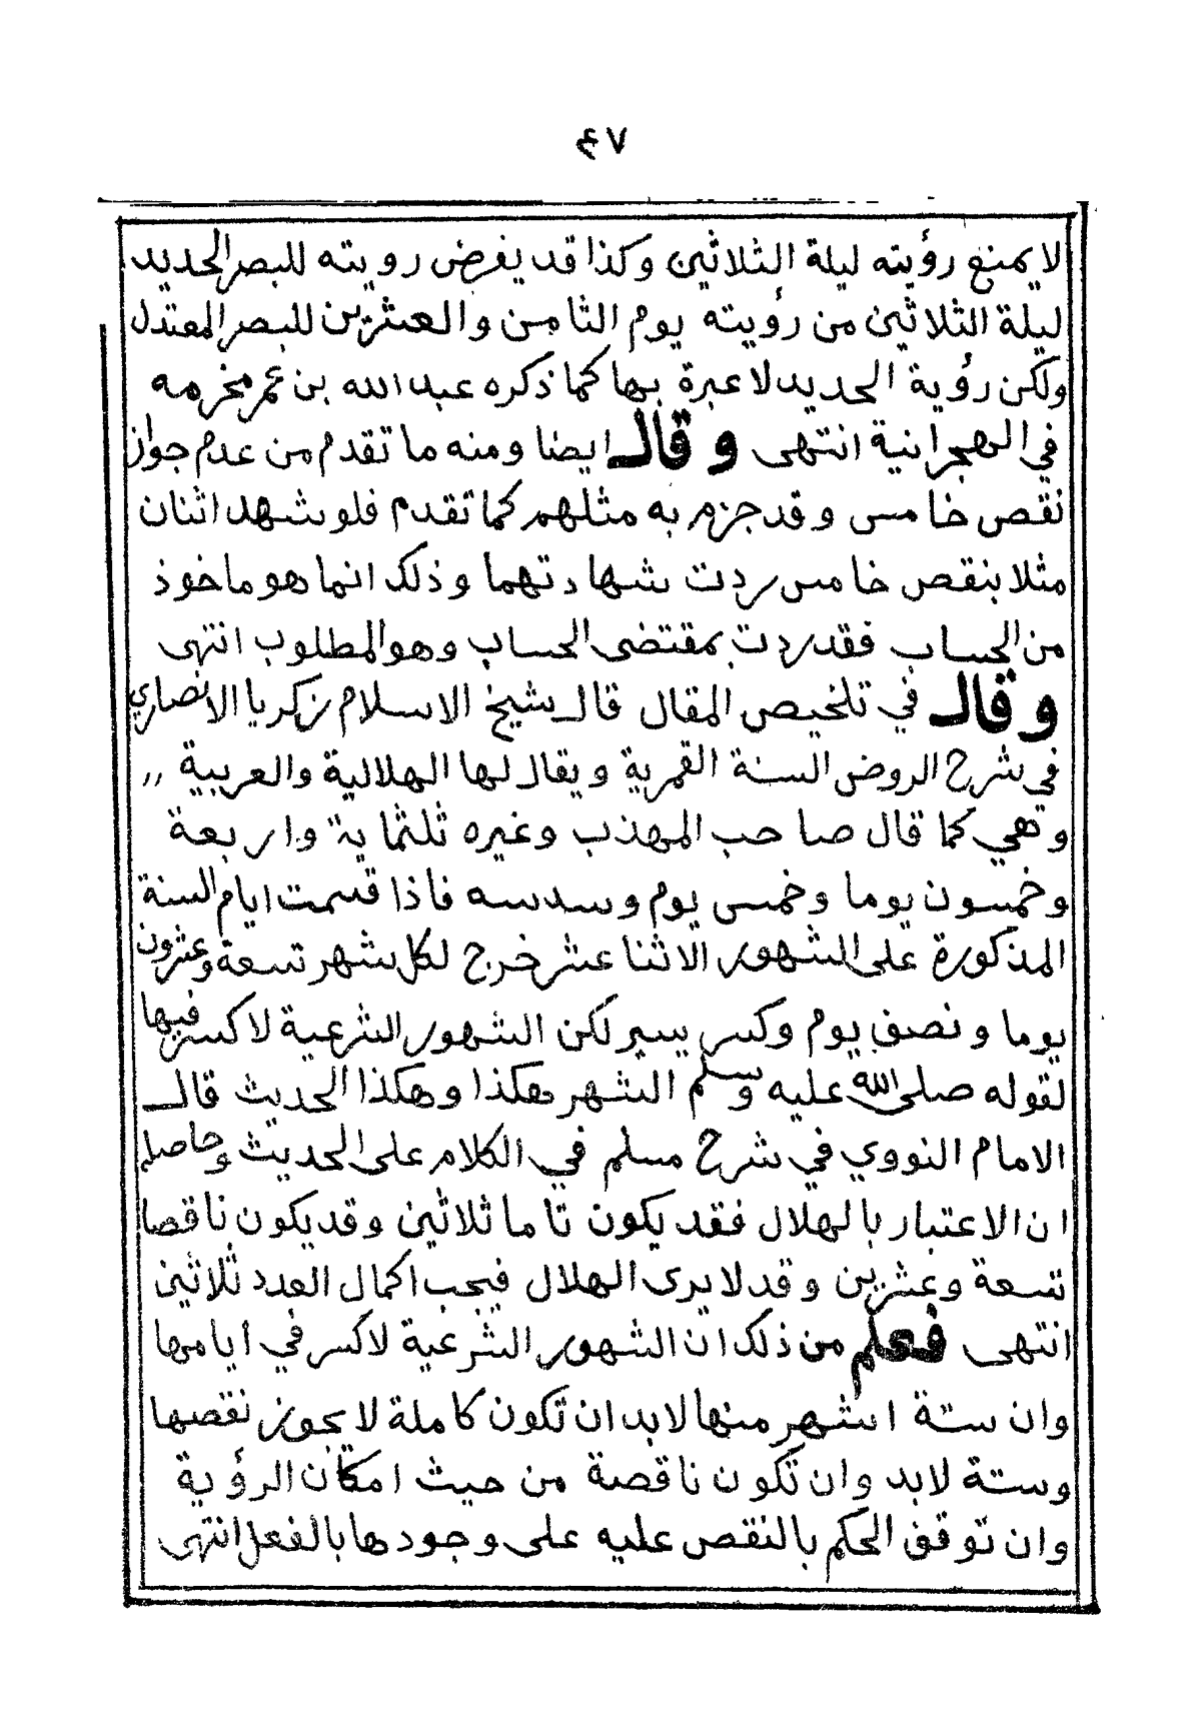 ٤٧
لا يمنع رؤيته ليلة الثلاثين وكذا قد يفرض رويته للبصر الحديد
ليلة الثلاثين من رؤيته يوم الثامن والعشرين للبصر المعتدل
ولكن رؤية الحديد لا عبرة بها كما ذكره عبد الله بن عمر مخرمه
في الهجرانية انتهى وقال ايضا ومنه ما تقدم من عدم جواز
نقص خامس وقد جزم به مثلهم كما تقدم فلو شهد اثنان
مثلا بنقص خامس ردت شهادتهما وذلك انما هو ماخوذ
من الحساب فقد ردت بمقتضى الحساب وهو المطلوب انتهى
وقال في تلخيص المقال قال شيخ الاسلام زكريا الانصاري
في شرح الروض السنة القمرية ويقال لها الهلالية والعربية ,,
وهي كما قال صاحب المهذب وغيره ثلثماية واربعة
وخمسون يوما وخمس يوم وسدسه فاذا قسمت ايام السنة
المذكورة على الشهور الاثنا عشر خرج لكل شهر تسعة وعشرون
يوما ونصف يوم وكسر يسير لكن الشهور الشرعية لا كسر فيها
لقوله صلى الله عليه وسلم الشهر هكذا وهكذا الحديث قال
الامام النووي في شرح مسلم في الكلام على الحديث وحاصله
ان الاعتبار بالهلال فقد يكون تاما ثلاثين وقد يكون ناقصا
تسعة وعشرين وقد لا يرى الهلال فيجب اكمال العدد ثلاثين
انتهى فعلم من ذلك ان الشهور الشرعية لا كسر في أيامها
وان ستة اشهر منها لابد ان تكون كاملة لا يجوز نقصها
وستة لابد وان تكون ناقصة من حيث امكان الرؤية
وان توقف الحكم بالنقص عليه على وجودها بالفعل انتهى